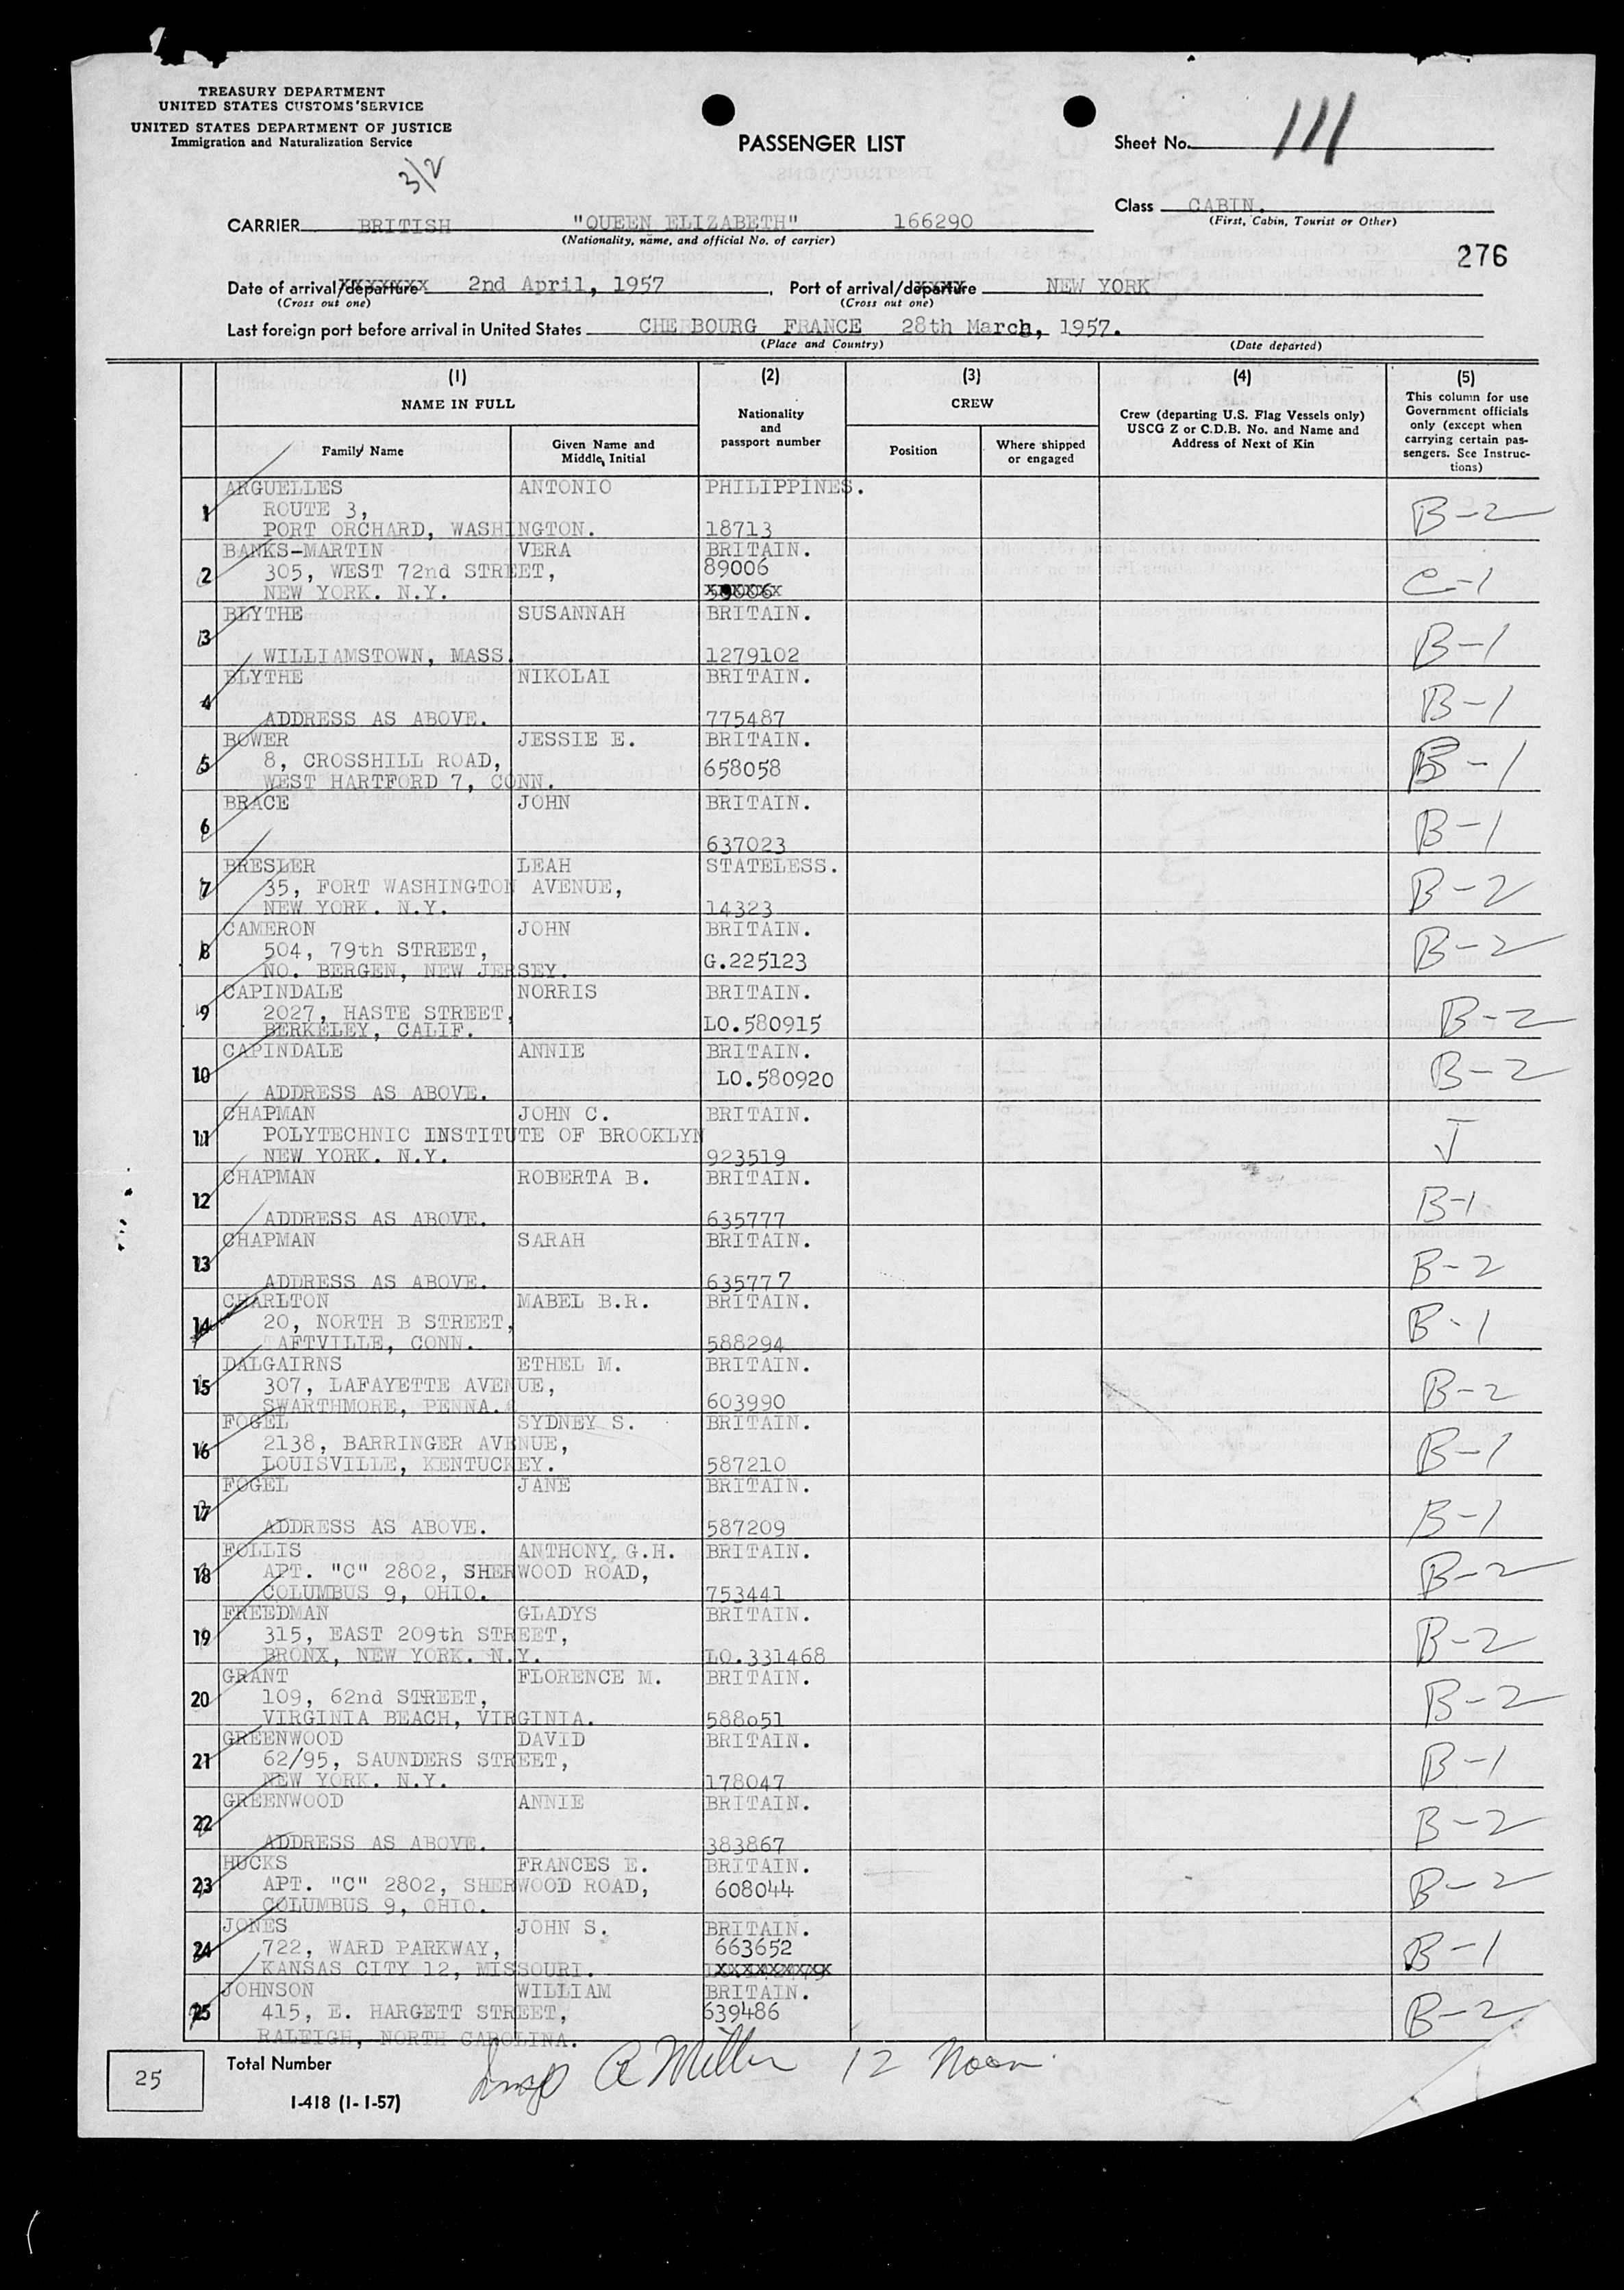 TREASURY DEPARTMENT
UNITED STATES CUSTOMS SERVICE
UNITED STATES DEPARTMENT OF JUSTICE
Immigration and Naturalization Service
3/2
PASSENGER LIST
Sheet No. 111
Class CABIN.
(First, Cabin, Tourist or Other)
CARRIER BRITISH "QUEEN ELIZABETH" 166290
(Nationality, name, and official No. of carrier)
276
Date of arrival/departure 2nd April, 1957. Port of arrival/departure NEW YORK
(Cross out one) (Cross out one)
Last foreign port before arrival in United States CHERBOURG FRANCE 28th March, 1957.
(Place and Country) (Date departed)
(1) (2) (3) (4) (5)
NAME IN FULL
Family Name
Given Name and Middle Initial
Nationality and passport number
CREW
Position
Where shipped or engaged
Crew (departing U.S. Flag Vessels only)
USCG Z or C.D.B. No. and Name and
Address of Next of Kin
This column for use
Government officials
only (except when
carrying certain pas-
sengers. See Instruc-
tions)
1 ARGUELLES ANTONIO PHILIPPINES.
ROUTE 3,
PORT ORCHARD, WASHINGTON. 18713 B-2
2 BANKS-MARTIN VERA BRITAIN.
305, WEST 72nd STREET, 89006
NEW YORK. N.Y. C-1
3 BLYTHE SUSANNAH BRITAIN.
WILLIAMSTOWN, MASS. 1279102 B-1
4 BLYTHE NIKOLAI BRITAIN.
ADDRESS AS ABOVE. 775487 B-1
5 BOWER JESSIE E. BRITAIN.
8, CROSSHILL ROAD, 658058 B-1
WEST HARTFORD 7, CONN.
6 BRACE JOHN BRITAIN.
637023 B-1
7 BRESLER LEAH STATELESS.
35, FORT WASHINGTON AVENUE,
NEW YORK. N.Y. 14323 B-2
8 CAMERON JOHN BRITAIN.
504, 79th STREET, G.225123 B-2
NO. BERGEN, NEW JERSEY.
9 CAPINDALE NORRIS BRITAIN.
2027, HASTE STREET, LO.580915 B-2
BERKELEY, CALIF.
10 CAPINDALE ANNIE BRITAIN.
LO.580920 B-2
ADDRESS AS ABOVE.
11 CHAPMAN JOHN C. BRITAIN.
POLYTECHNIC INSTITUTE OF BROOKLYN J
NEW YORK. N.Y. 923519
12 CHAPMAN ROBERTA B. BRITAIN.
ADDRESS AS ABOVE. 635777 B-1
13 CHAPMAN SARAH BRITAIN.
ADDRESS AS ABOVE. 635777 B-2
14 CHARLTON MABEL B.R. BRITAIN.
20, NORTH B STREET, B-1
TAFTVILLE, CONN. 588294
15 DALGAIRNS ETHEL M. BRITAIN.
307, LAFAYETTE AVENUE, B-2
SWARTHMORE, PENNA. 603990
16 FOGEL SYDNEY S. BRITAIN.
2138, BARRINGER AVENUE, B-1
LOUISVILLE, KENTUCKEY. 587210
17 FOGEL JANE BRITAIN.
ADDRESS AS ABOVE. 587209 B-1
18 FOLLIS ANTHONY G.H. BRITAIN.
APT. "C" 2802, SHERWOOD ROAD, B-2
COLUMBUS 9, OHIO. 753441
19 FREEDMAN GLADYS BRITAIN.
315, EAST 209th STREET, B-2
BRONX, NEW YORK. N.Y. LO.331468
20 GRANT FLORENCE M. BRITAIN.
109, 62nd STREET, B-2
VIRGINIA BEACH, VIRGINIA. 588051
21 GREENWOOD DAVID BRITAIN.
62/95, SAUNDERS STREET, B-1
NEW YORK. N.Y. 178047
22 GREENWOOD ANNIE BRITAIN.
ADDRESS AS ABOVE. 383867 B-2
23 HUCKS FRANCES E. BRITAIN.
APT. "C" 2802, SHERWOOD ROAD, 608044 B-2
COLUMBUS 9, OHIO.
24 JONES JOHN S. BRITAIN.
722, WARD PARKWAY, 663652 B-1
KANSAS CITY 12, MISSOURI.
25 JOHNSON WILLIAM BRITAIN.
415, E. HARGETT STREET, 639486 B-2
RALEIGH, NORTH CAROLINA.
25 Total Number
Insp A Miller 12 Noon
I-418 (1-1-57)